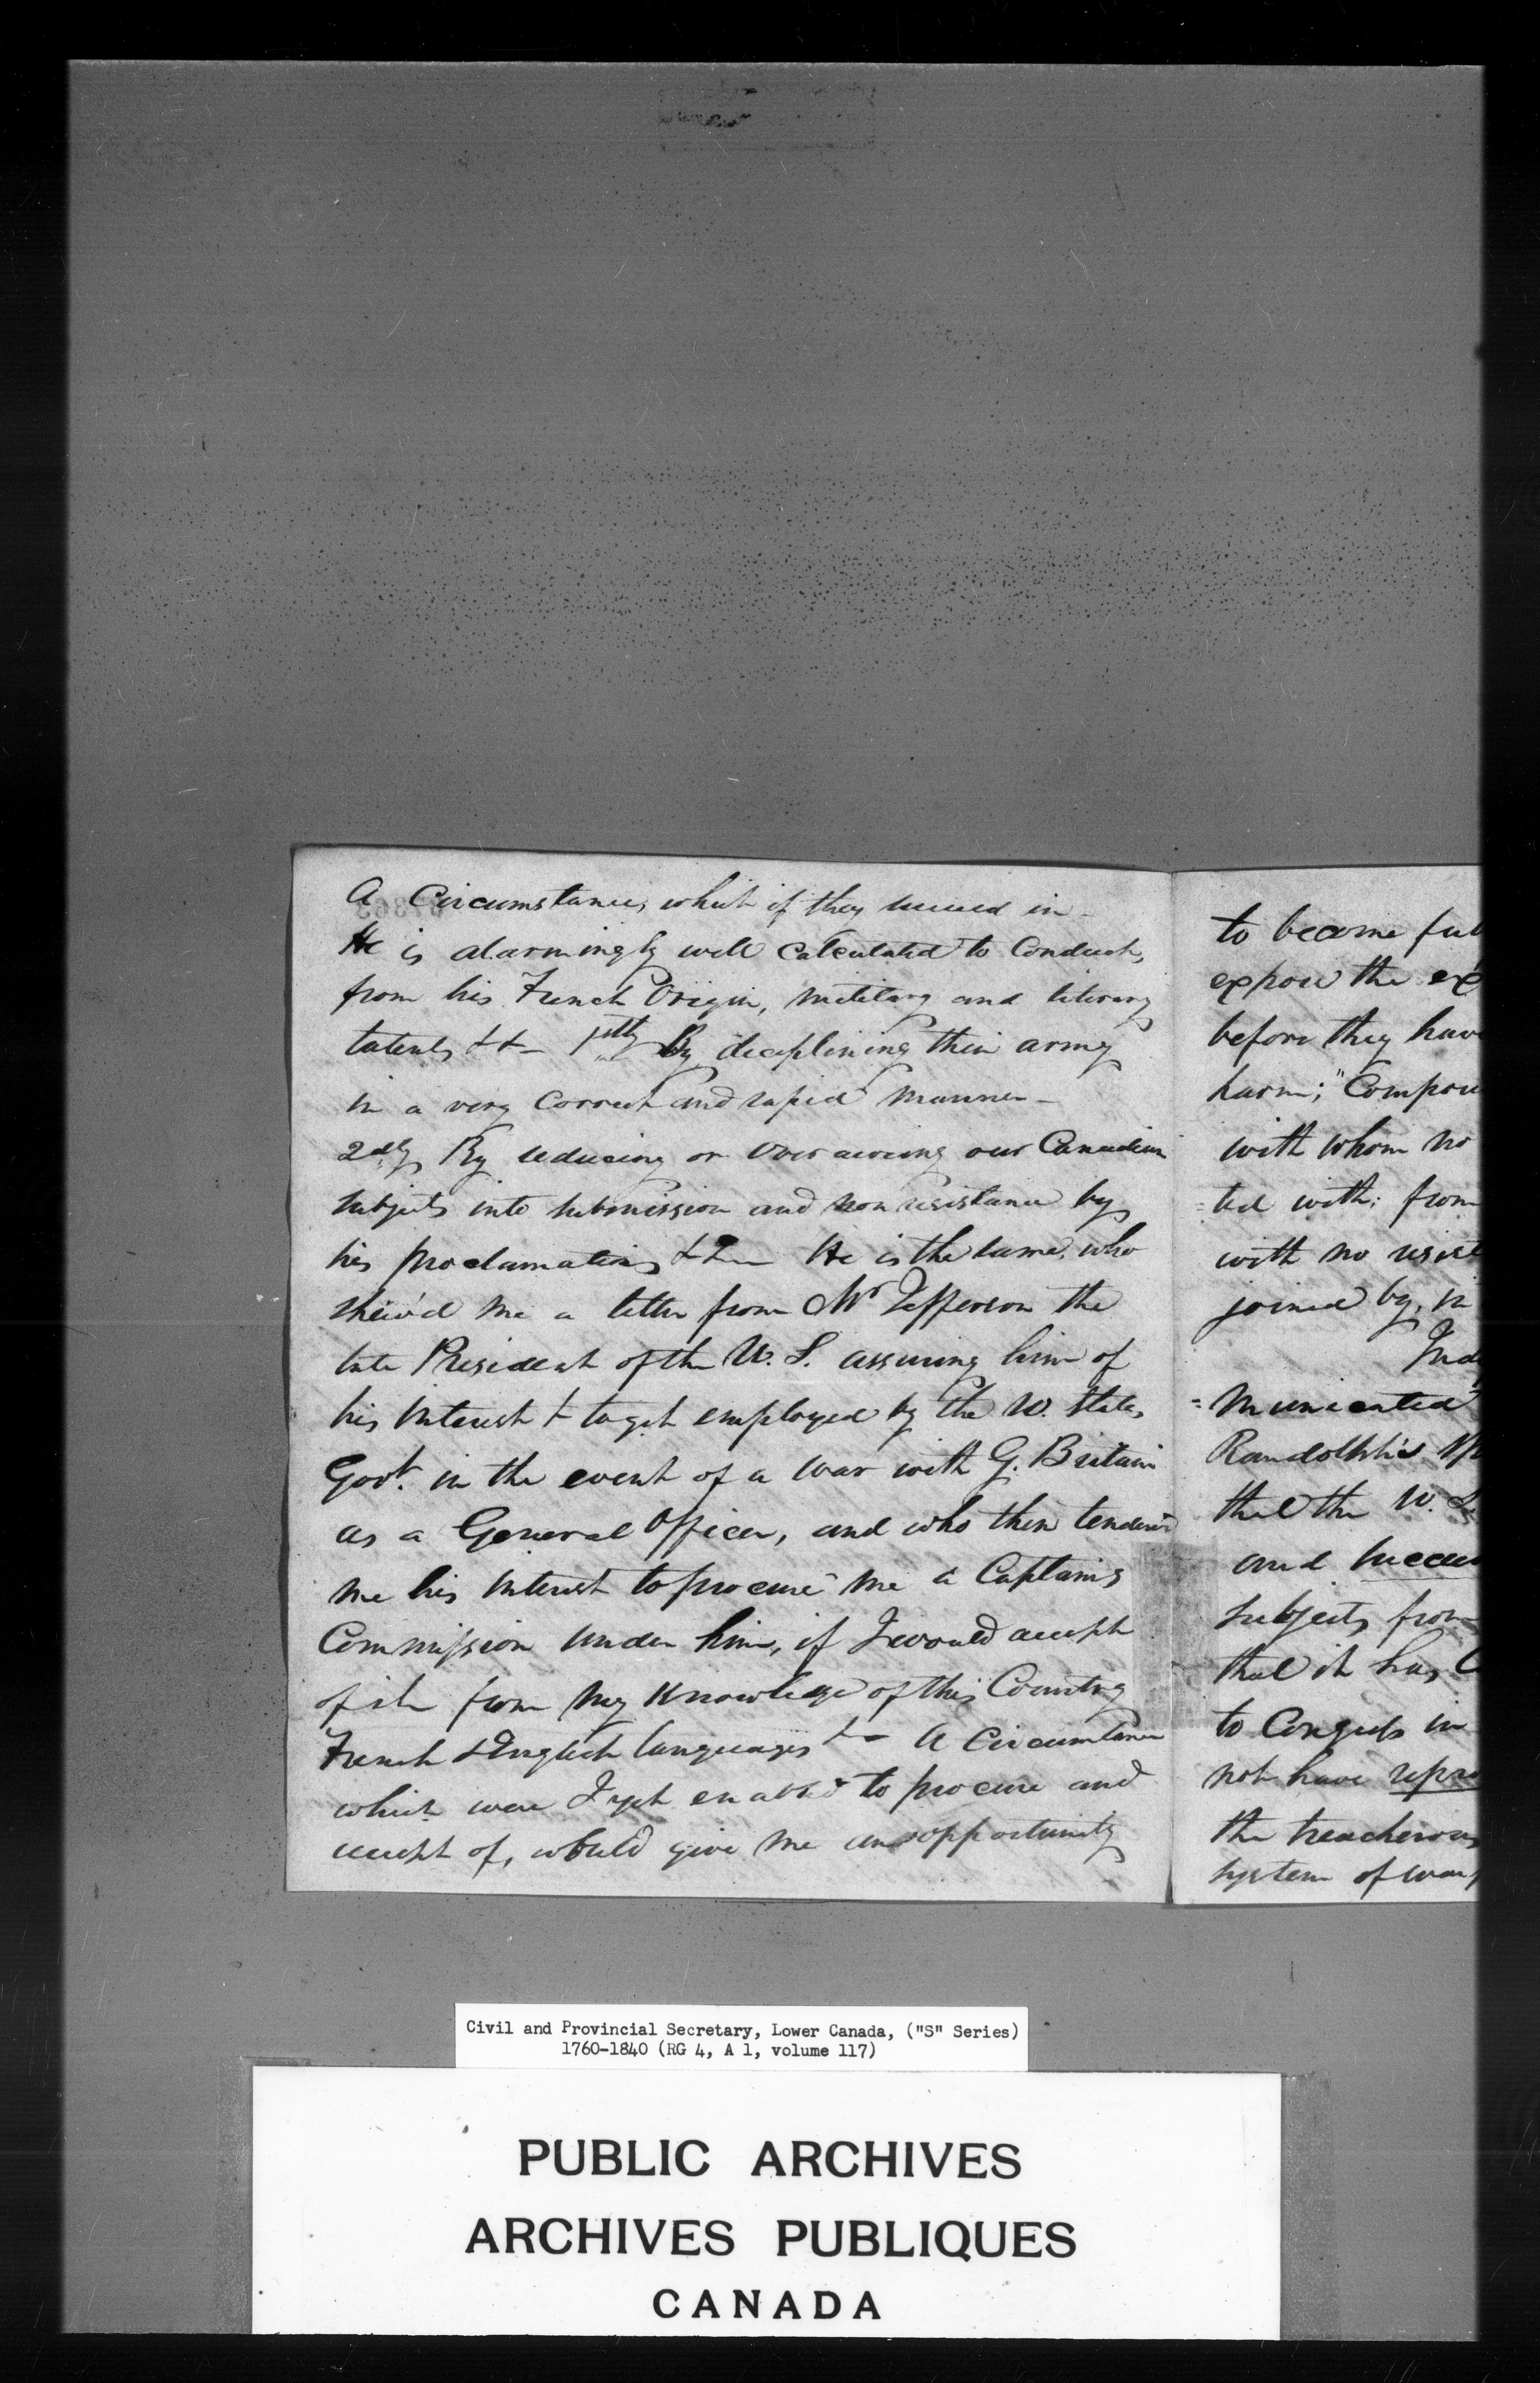 A Circumstance, which if they succeed in
He is alarmingly well Calculated to Conduct,
from his French Origin, military and literary
talents && 1stly By disciplining their army
in a very Correct and rapid manner
2dly By seducing or overawing our Canadian
subjects into submission and non resistance by
his proclamations &&c He is the same, who
shew'd me a letter from Mr Jefferson the
late President of the U. S. assuring him of
his interest & to get employed by the U. States
Govt. in the event of a war with G. Britain
as a General Officer, and who then tender'd
me his interest to procure me a Captains
Commission under him, if I would accept
of it from my Knowledge of this Country
French & English languages &c A Circumstance
which were I yet enabled to procure and
accept of, would give me an opportunity
to become ful
expose the ex
before they have
harm; "Compou
with whom no
=ted with; from
with no resist
joined by, in
Ind
=municated
Randolph's sp
that the U. S.
and succeed
subjects from
that it has
to Congress in
not have repre
the treacherous
system of war,
Civil and Provincial Secretary, Lower Canada, ("S" Series)
1760-1840 (RG 4, A 1, volume 117)
PUBLIC ARCHIVES
ARCHIVES PUBLIQUES
CANADA